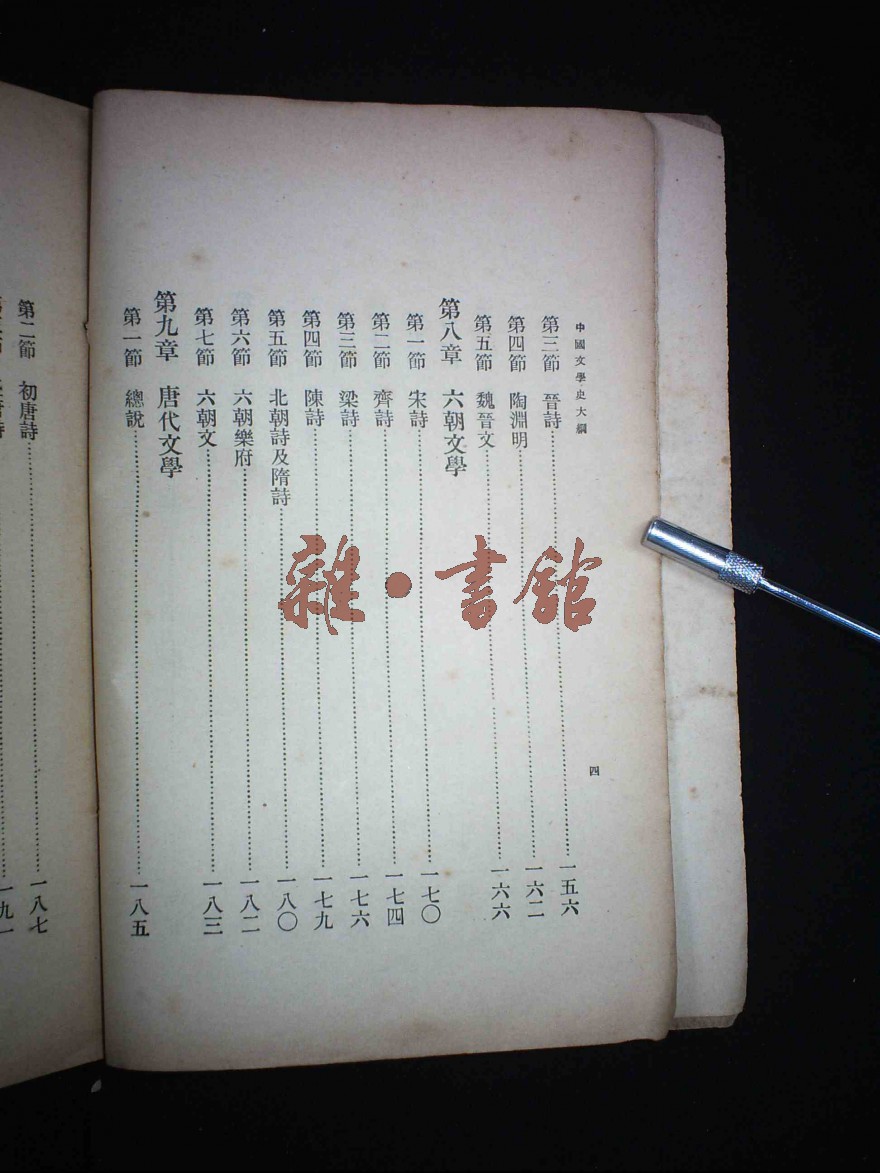 中國文學史大綱
四
第三節 晉詩……一五六
第四節 陶淵明……一六二
第五節 魏晉文……一六六
第八章 六朝文學
第一節 宋詩……一七〇
第二節 齊詩……一七四
第三節 梁詩……一七六
第四節 陳詩……一七九
第五節 北朝詩及隋詩……一八〇
第六節 六朝樂府……一八二
第七節 六朝文……一八三
第九章 唐代文學
第一節 總說……一八五
第二節 初唐詩……一八七
一九一
雜·書館